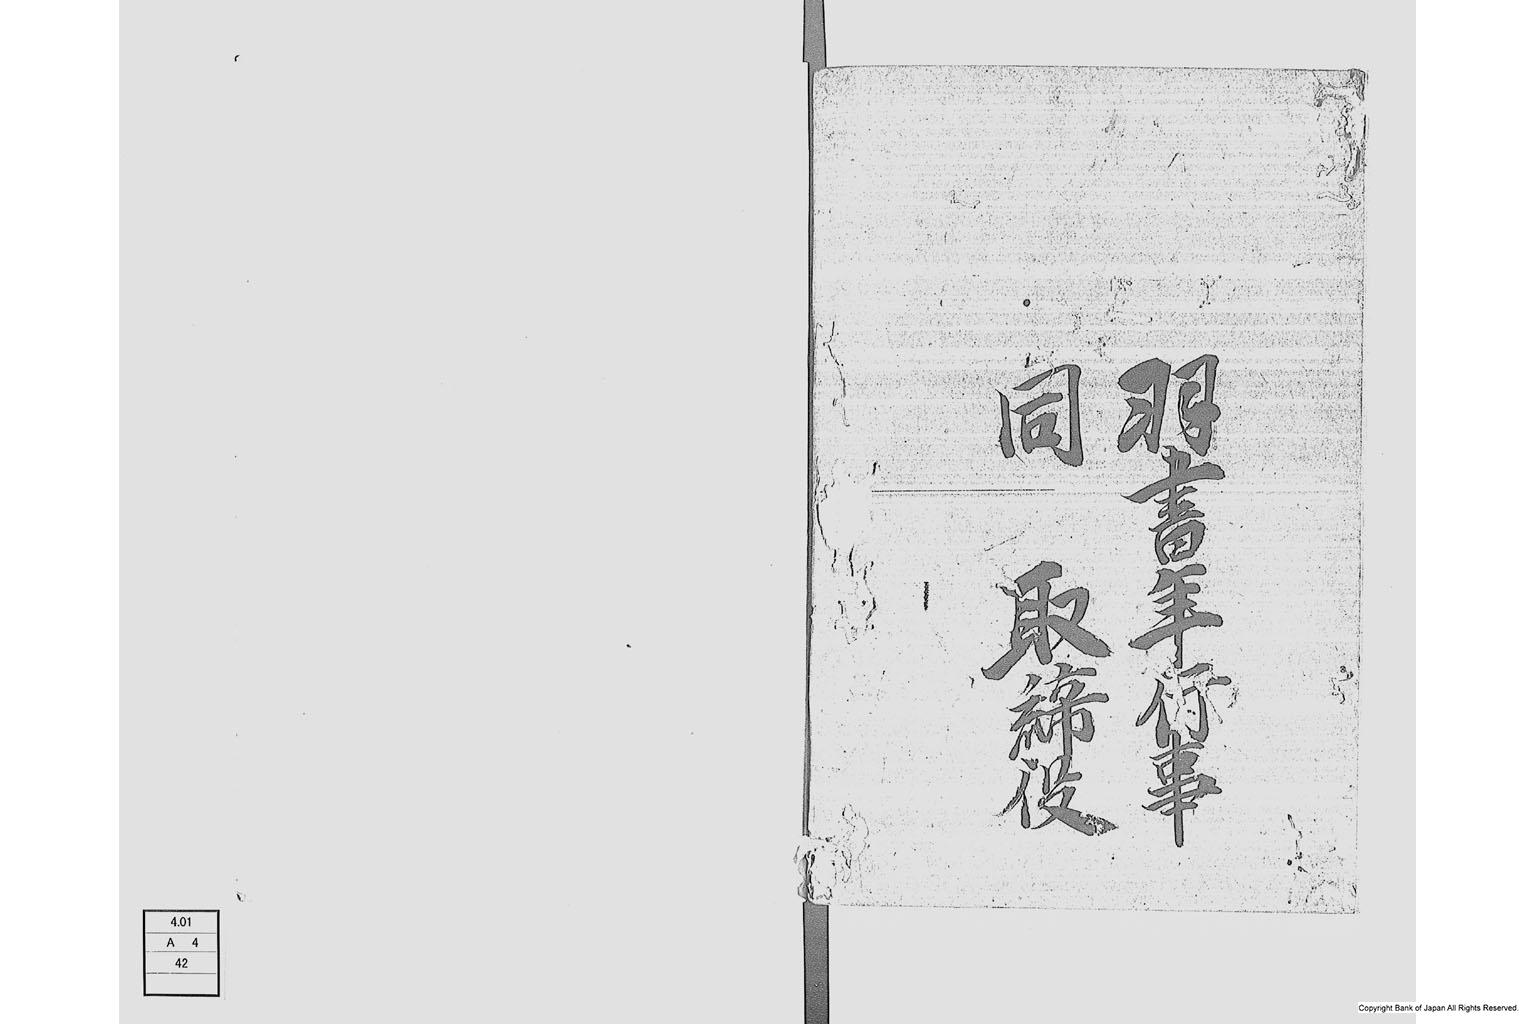 羽書年行事
同 取締役
4.01
A 4
42
Copyright Bank of Japan All Rights Reserved.